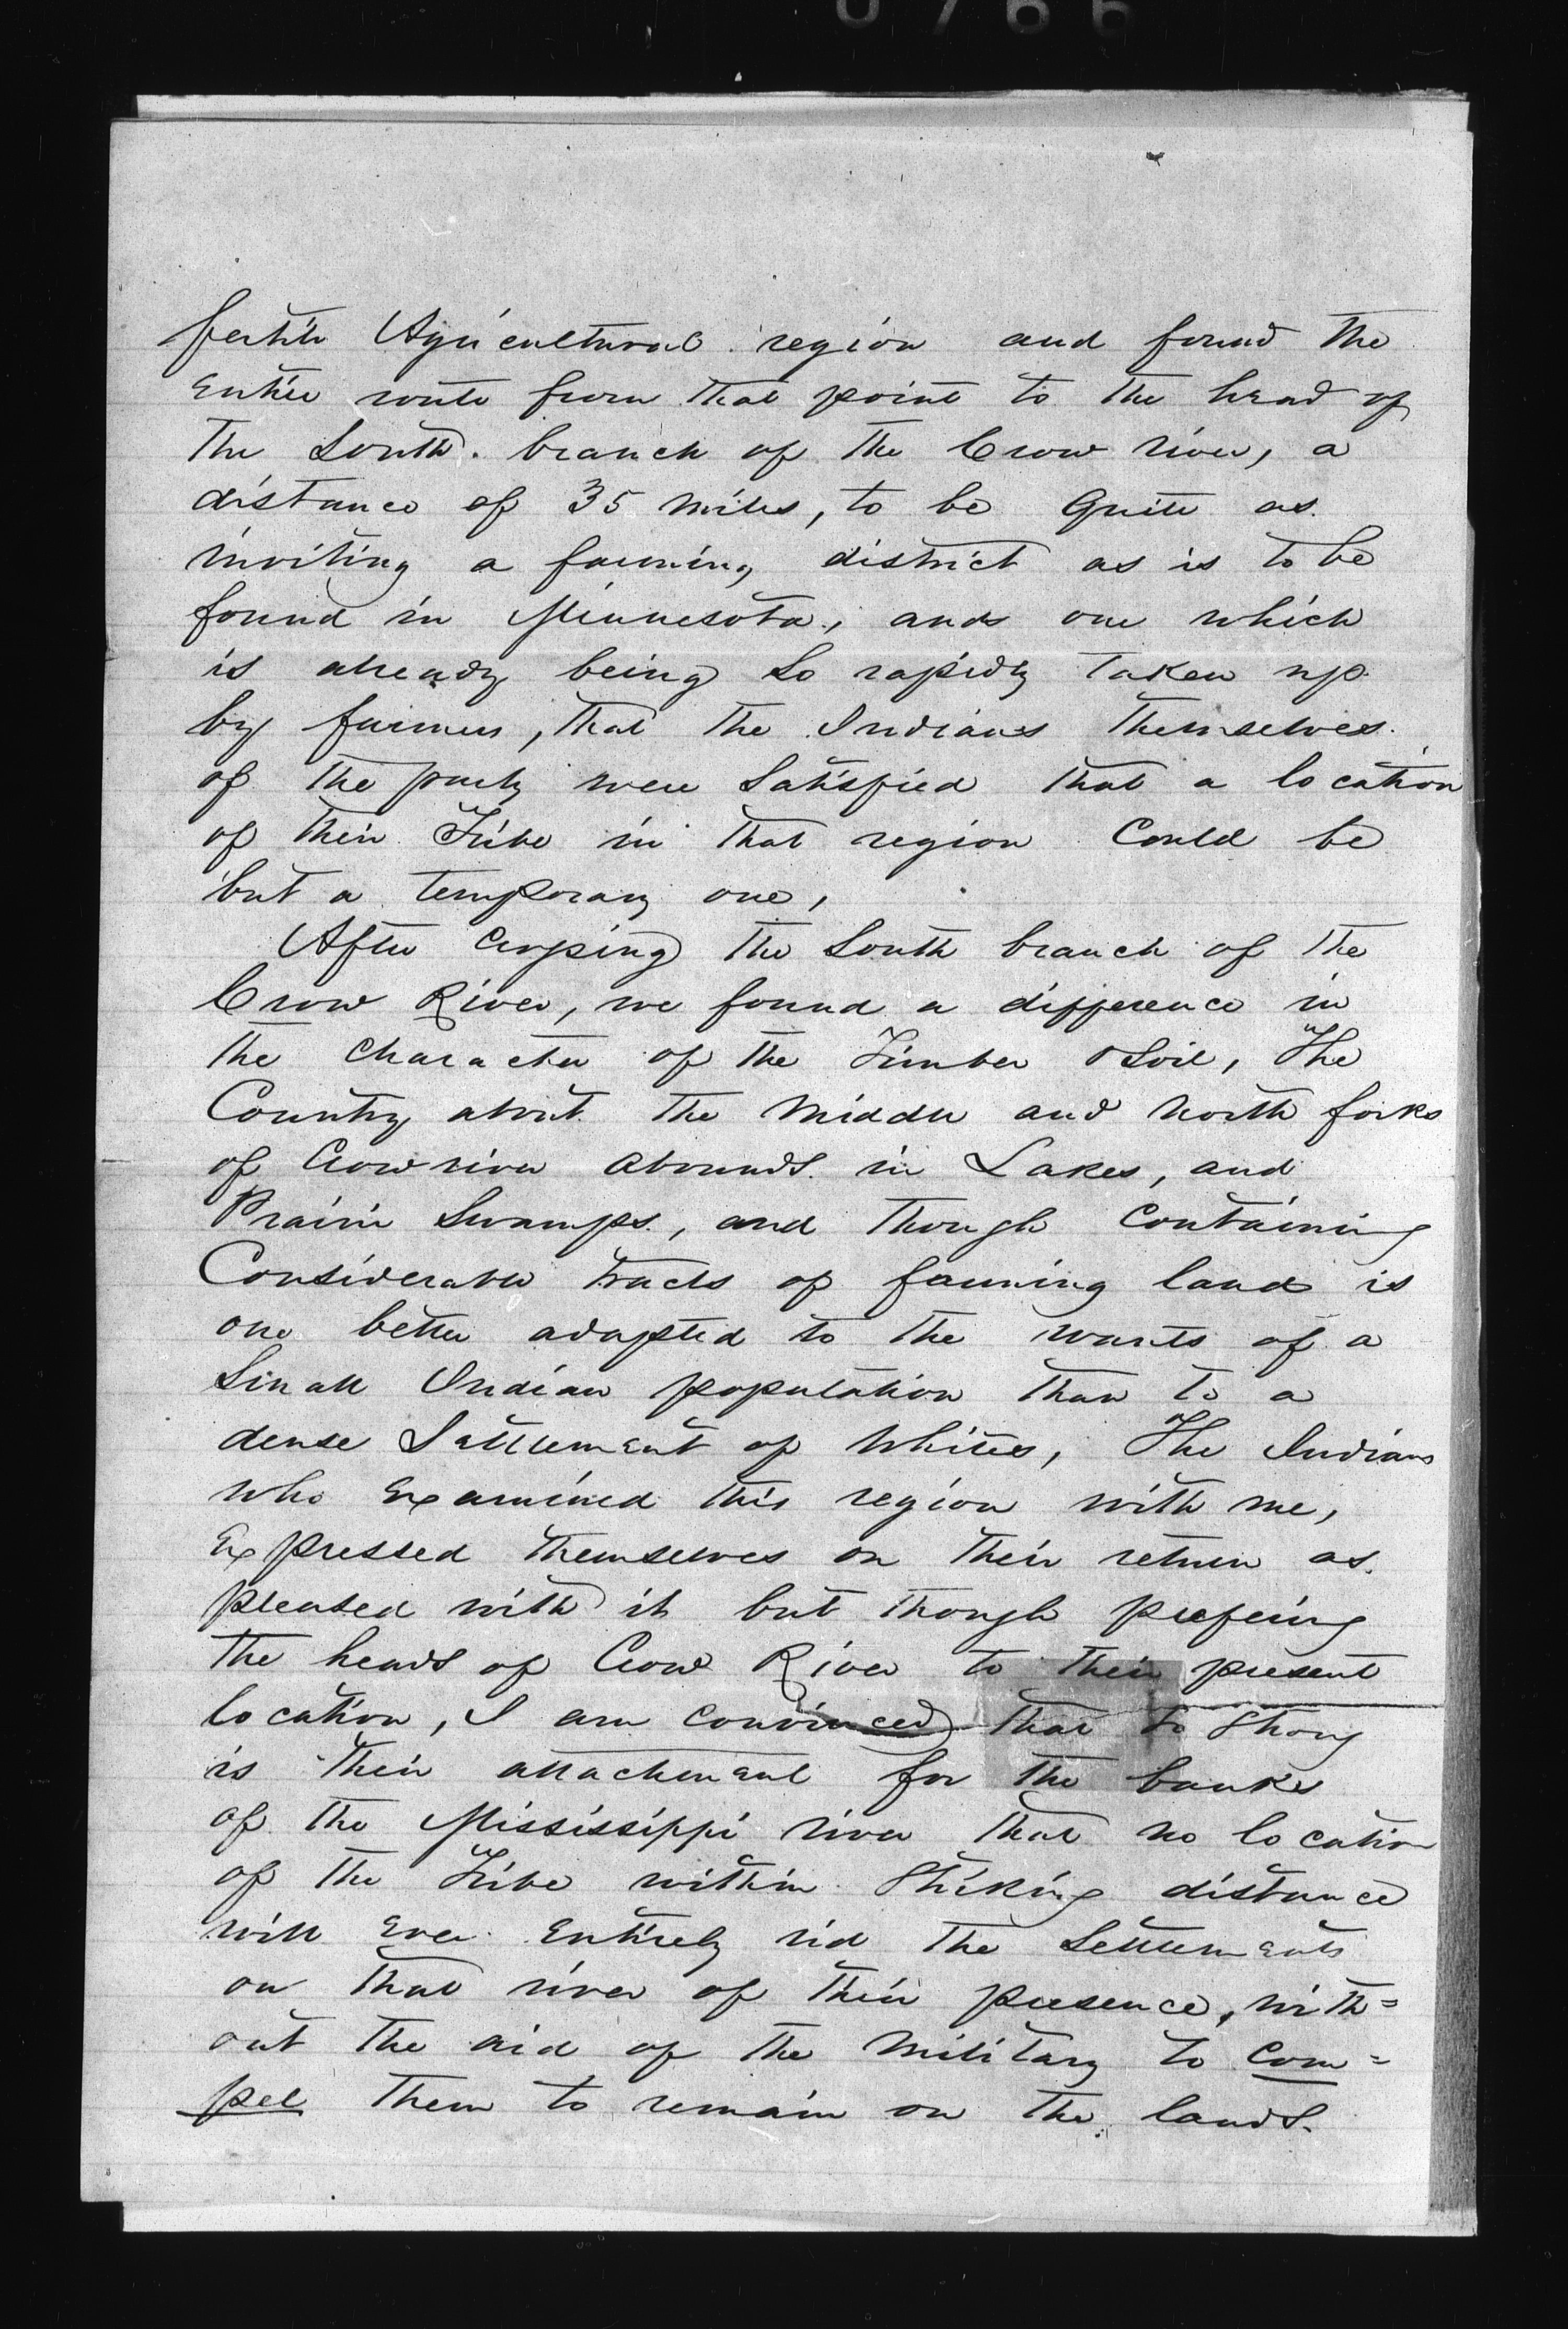 0766
fertile Agricultural region and found the
entire route from that point to the head of
the South branch of the Crow river, a
distance of 35 miles, to be quite as
inviting a farming district as is to be
found in Minnesota, and one which
is already being so rapidly taken up
by farmers, that the Indians themselves
of the party were satisfied that a location
of their Tribe in that region could be
but a temporary one,
After crossing the South branch of the
Crow River, we found a difference in
the character of the Timber & Soil, The
Country about the Middle and North forks
of Crow river abounds in Lakes, and
Prairie Swamps, and though containing
Considerable tracts of farming land is
one better adapted to the wants of a
Small Indian population than to a
dense Settlement of Whites, The Indians
who examined this region with me,
expressed themselves on their return as
pleased with it but though prefering
the heads of Crow River to their present
location, I am convinced that so strong
is their attachment for the banks
of the Mississippi river that no location
of the Tribe within striking distance
will ever entirely rid the Settlements
on that river of their presence, with=
out the aid of the Military to com=
pel them to remain on the lands.